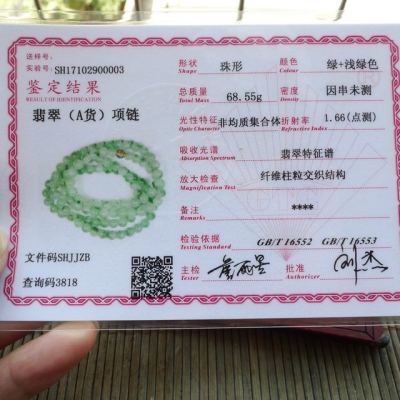 送样号:
实验号: SH17102900003
鉴定结果
RESULT OF IDENTIFICATION
翡翠（A货）项链
文件码SHJJZB
查询码3818
形状 Shape: 珠形
颜色 Colour 绿+浅绿色
总质量 Total Mass 68.55g
密度 Density 因串未测
光性特征 Optic Character 非均质集合体
折射率 Refractive Index 1.66(点测)
吸收光谱 Absorption Spectrum 翡翠特征谱
放大检查 Magnification Test 纤维柱粒交织结构
备注 Remarks ****
检验依据 Testing Standard GB/T 16552 GB/T 16553
主检 Tester
批准 Authorizer